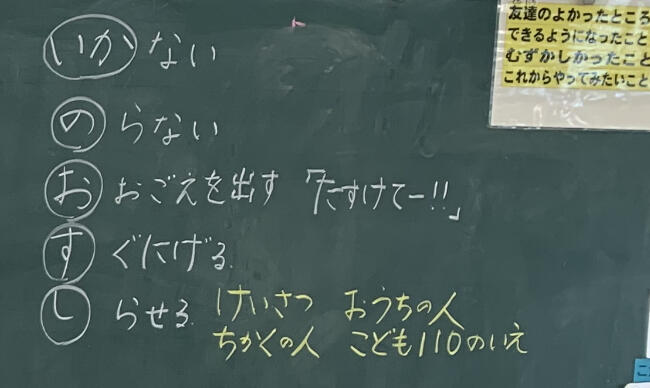 いかない
のらない
おおごえを出す「たすけてー!!」
すぐにげる
しらせる けいさつ おうちの人
ちかくの人 こども110のいえ
友達のよかったところ
できるようになったこと
むずかしかったこと
これからやってみたいこと